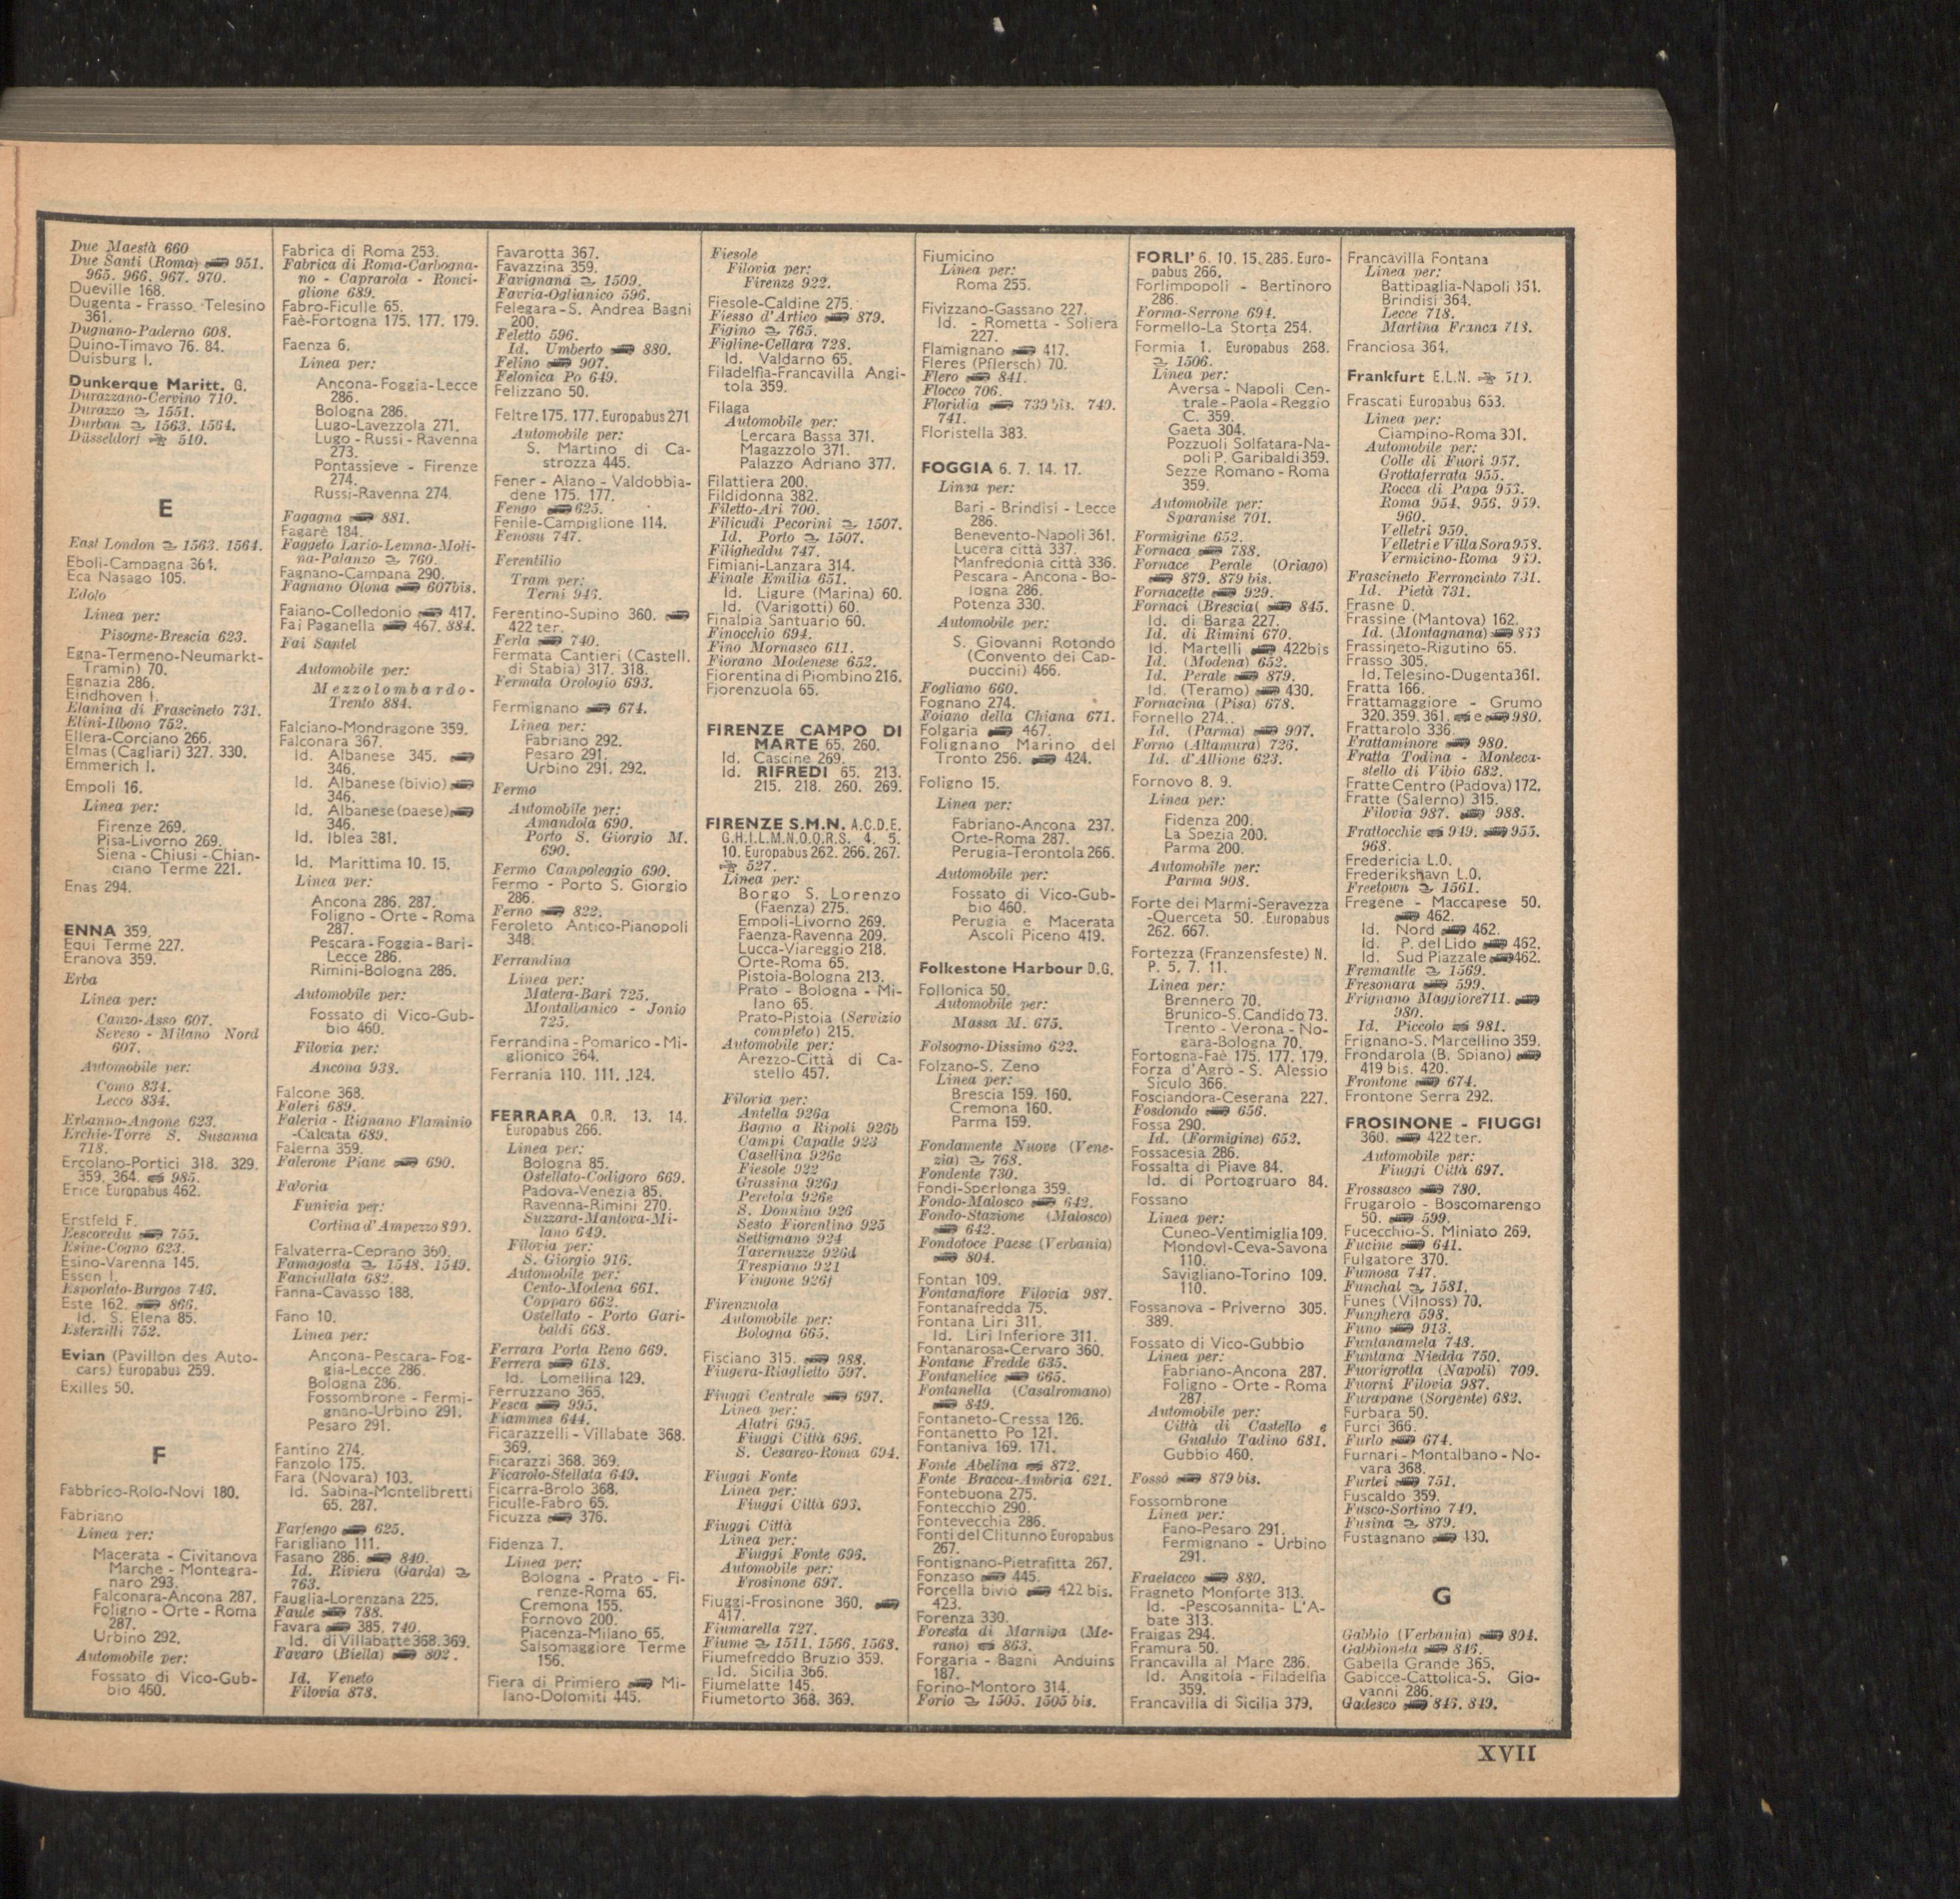 Due Maestà 660
Due Santi (Roma) 951.
965. 966. 967. 970.
Dueville 168.
Dugenta - Frasso Telesino
361.
Dugnano-Paderno 608.
Duino-Timavo 76. 84.
Duisburg I.
Dunkerque Maritt. G.
Durazzano-Cervino 710.
Durazzo 1551.
Durban 1563. 1564.
Düsseldorf 510.
E
East London 1563. 1564.
Eboli-Campagna 364.
Eca Nasago 105.
Edolo
Linea per:
Pisogne-Brescia 623.
Egna-Termeno-Neumarkt-
Tramin) 70.
Egnazia 286.
Eindhoven I.
Elanina di Frascineto 731.
Elini-Ilbono 752.
Ellera-Corciano 266.
Elmas (Cagliari) 327. 330.
Emmerich I.
Empoli 16.
Linea per:
Firenze 269.
Pisa-Livorno 269.
Siena - Chiusi - Chian-
ciano Terme 221.
Enas 294.
ENNA 359.
Equi Terme 227.
Eranova 359.
Erba
Linea per:
Canzo-Asso 607.
Seveso - Milano Nord
607.
Automobile per:
Como 834.
Lecco 834.
Erbanno-Angone 623.
Erchie-Torre S. Susanna
718.
Ercolano-Portici 318. 329.
359. 364. 985.
Erice Europabus 462.
Erstfeld F.
Eescovedu 755.
Esine-Cogno 623.
Esino-Varenna 145.
Essen I.
Esporlato-Burgos 746.
Este 162. 866.
Id. S. Elena 85.
Esterzili 752.
Evian (Pavillon des Auto-
cars) Europabus 259.
Exilles 50.
F
Fabbrico-Rolo-Novi 180.
Fabriano
Linea per:
Macerata - Civitanova
Marche - Montegra-
naro 293.
Falconara-Ancona 287.
Foligno - Orte - Roma
287.
Urbino 292.
Automobile per:
Fossato di Vico-Gub-
bio 460.
Fabrica di Roma 253.
Fabrica di Roma-Carbogna-
no - Caprarola - Ronci-
glione 689.
Fabro-Ficulle 65.
Faè-Fortogna 175. 177. 179.
Faenza 6.
Linea per:
Ancona-Foggia-Lecce
286.
Bologna 286.
Lugo-Lavezzola 271.
Lugo - Russi - Ravenna
273.
Pontassieve - Firenze
274.
Russi-Ravenna 274.
Fagagna 881.
Fagarè 184.
Faggeto Lario-Lemna-Moli-
na-Palanzo 760.
Fagnano-Campana 290.
Fagnano Olona 607bis.
Faiano-Colledonio 417.
Fai Paganella 467. 884.
Fai Santel
Automobile per:
Mezzolombardo-
Trento 884.
Falciano-Mondragone 359.
Falconara 367.
Id. Albanese 345.
346.
Id. Albanese (bivio)
346.
Id. Albanese (paese)
346.
Id. Iblea 381.
Id. Marittima 10. 15.
Linea per:
Ancona 286. 287.
Foligno - Orte - Roma
287.
Pescara - Foggia - Bari -
Lecce 286.
Rimini-Bologna 286.
Automobile per:
Fossato di Vico-Gub-
bio 460.
Filovia per:
Ancona 938.
Falcone 368.
Faleri 689.
Faleria - Rignano Flaminio
-Calcata 689.
Falerna 359.
Falerone Piane 690.
Faloria
Funivia per:
Cortina d'Ampezzo 899.
Falvaterra-Ceprano 360.
Famagosta 1548. 1549.
Fanciullata 682.
Fanna-Cavasso 188.
Fano 10.
Linea per:
Ancona-Pescara-Fog-
gia-Lecce 286.
Bologna 286.
Fossombrone - Fermi-
gnano-Urbino 291.
Pesaro 291.
Fantino 274.
Fanzolo 175.
Fara (Novara) 103.
Id. Sabina-Montelibretti
65. 287.
Farfengo 625.
Farigliano 111.
Fasano 286. 840.
Id. Riviera (Garda)
763.
Fauglia-Lorenzana 225.
Faule 788.
Favara 385. 740.
Id. di Villabatte 368.369.
Favaro (Biella) 802.
Id. Veneto
Filovia 878.
Favarotta 367.
Favazzina 359.
Favignana 1509.
Favria-Oglianico 596.
Felegara-S. Andrea Bagni
200.
Feletto 596.
Id. Umberto 880.
Felino 907.
Felonica Po 649.
Felizzano 50.
Feltre 175. 177. Europabus 271
Automobile per:
S. Martino di Ca-
strozza 445.
Fener - Alano - Valdobbia-
dene 175. 177.
Fengo 625.
Fenile-Campiglione 114.
Fenosu 747.
Ferentilio
Tram per:
Terni 946.
Ferentino-Supino 360.
422 ter.
Ferla 740.
Fermata Cantieri (Castell.
di Stabia) 317. 318.
Fermata Orologio 693.
Fermignano 674.
Linea per:
Fabriano 292.
Pesaro 291.
Urbino 291. 292.
Fermo
Automobile per:
Amandola 690.
Porto S. Giorgio M.
690.
Fermo Campoleggio 690.
Fermo - Porto S. Giorgio
286.
Ferno 822.
Feroleto Antico-Pianopoli
348.
Ferrandina
Linea per:
Matera-Bari 725.
Montalbanico - Jonio
725.
Ferrandina-Pomarico-Mi-
glionico 364.
Ferrania 110. 111. 124.
FERRARA O.R. 13. 14.
Europabus 266.
Linea per:
Bologna 85.
Ostellato-Codigoro 669.
Padova-Venezia 85.
Ravenna-Rimini 270.
Suzzara-Mantova-Mi-
lano 649.
Filovia per:
S. Giorgio 916.
Automobile per:
Cento-Modena 661.
Copparo 662.
Ostellato - Porto Gari-
baldi 668.
Ferrara Porta Reno 669.
Ferrera 618.
Id. Lomellina 129.
Ferruzzano 365.
Fesca 995.
Fiammes 644.
Ficarazzelli - Villabate 368.
369.
Ficarazzi 368. 369.
Ficarolo-Stellata 649.
Ficarra-Brolo 368.
Ficulle-Fabro 65.
Ficuzza 376.
Fidenza 7.
Linea per:
Bologna - Prato - Fi-
renze-Roma 65.
Cremona 155.
Fornovo 200.
Piacenza-Milano 65.
Salsomaggiore Terme
156.
Fiera di Primiero Mi-
lano-Dolomiti 445.
Fiesole
Filovia per:
Firenze 922.
Fiesole-Caldine 275.
Fiesso d'Artico 879.
Figino 765.
Figline-Cellara 728.
Id. Valdarno 65.
Filadelfia-Francavilla Angi-
tola 359.
Filaga
Automobile per:
Lercara Bassa 371.
Magazzolo 371.
Palazzo Adriano 377.
Filattiera 200.
Fildidonna 382.
Filetto-Ari 700.
Filicudi Pecorini 1507.
Id. Porto 1507.
Filigheddu 747.
Fimiani-Lanzara 314.
Finale Emilia 651.
Id. Ligure (Marina) 60.
Id. (Varigotti) 60.
Finalpia Santuario 60.
Finocchio 694.
Fino Mornasco 611.
Fiorano Modenese 652.
Fiorentina di Piombino 216.
Fiorenzuola 65.
FIRENZE CAMPO DI
MARTE 65. 260.
Id. Cascine 269.
Id. RIFREDI 65. 213.
215. 218. 260. 269.
FIRENZE S.M.N. A.C.D.E.
G.H.I.L.M.N.O.Q.R.S. 4. 5.
10. Europabus 262. 266. 267.
527.
Linea per:
Borgo S. Lorenzo
(Faenza) 275.
Empoli-Livorno 269.
Faenza-Ravenna 209.
Lucca-Viareggio 218.
Orte-Roma 65.
Pistoia-Bologna 213.
Prato - Bologna - Mi-
lano 65.
Prato-Pistoia (Servizio
completo) 215.
Automobile per:
Arezzo-Città di Ca-
stello 457.
Filovia per:
Antella 926a
Bagno a Ripoli 926b
Campi Capalle 923
Casellina 926c
Fiesole 922
Grassina 926g
Peretola 926e
S. Donnino 926
Sesto Fiorentino 925
Settignano 924
Tavernuzze 926d
Trespiano 921
Vingone 926f
Firenzuola
Automobile per:
Bologna 665.
Fisciano 315. 988.
Fiugera-Riaglietto 597.
Fiuggi Centrale 697.
Linea per:
Alatri 695.
Fiuggi Città 696.
S. Cesareo-Roma 694.
Fiuggi Fonte
Linea per:
Fiuggi Città 693.
Fiuggi Città
Linea per:
Fiuggi Fonte 696.
Automobile per:
Frosinone 697.
Fiuggi-Frosinone 360.
417.
Fiumarella 727.
Fiume 1511. 1566. 1568.
Fiumefreddo Bruzio 359.
Id. Sicilia 366.
Fiumelatte 145.
Fiumetorto 368. 369.
Fiumicino
Linea per:
Roma 255.
Fivizzano-Gassano 227.
Id. - Rometta - Soliera
227.
Flamignano 417.
Fleres (Pflersch) 70.
Flero 841.
Flocco 706.
Floridia 739 bis. 740.
741.
Floristella 383.
FOGGIA 6. 7. 14. 17.
Linea per:
Bari - Brindisi - Lecce
286.
Benevento-Napoli 361.
Lucera città 337.
Manfredonia città 336.
Pescara - Ancona - Bo-
logna 286.
Potenza 330.
Automobile per:
S. Giovanni Rotondo
(Convento dei Cap-
puccini) 466.
Fogliano 660.
Fognano 274.
Foiano della Chiana 671.
Folgaria 467.
Folignano Marino del
Tronto 256. 424.
Foligno 15.
Linea per:
Fabriano-Ancona 237.
Orte-Roma 287.
Perugia-Terontola 266.
Automobile per:
Fossato di Vico-Gub-
bio 460.
Perugia e Macerata
Ascoli Piceno 419.
Folkestone Harbour D.G.
Follonica 50.
Automobile per:
Massa M. 675.
Folsogno-Dissimo 622.
Folzano-S. Zeno
Linea per:
Brescia 159. 160.
Cremona 160.
Parma 159.
Fondamente Nuove (Vene-
zia) 768.
Fondente 730.
Fondi-Sperlonga 359.
Fondo-Malosco 642.
Fondo-Stazione (Malosco)
642.
Fondotoce Paese (Verbania)
804.
Fontan 109.
Fontanafiore Filovia 987.
Fontanafredda 75.
Fontana Liri 311.
Id. Liri Inferiore 311.
Fontanarosa-Cervaro 360.
Fontane Fredde 635.
Fontanelice 665.
Fontanella (Casalromano)
849.
Fontaneto-Cressa 126.
Fontanetto Po 121.
Fontaniva 169. 171.
Fonte Abelina 872.
Fonte Bracca-Ambria 621.
Fontebuona 275.
Fontecchio 290.
Fontevecchia 286.
Fonti del Clitunno Europabus
267.
Fontignano-Pietrafitta 267.
Fonzaso 445.
Forcella bivio 422 bis.
423.
Forenza 330.
Foresta di Marniga (Me-
rano) 863.
Forgaria - Bagni Anduins
187.
Forino-Montoro 314.
Forio 1505. 1505 bis.
FORLI' 6. 10. 15. 286. Euro-
pabus 266.
Forlimpopoli - Bertinoro
286.
Forma-Serrone 694.
Formello-La Storta 254.
Formia 1. Europabus 268.
1506.
Linea per:
Aversa - Napoli Cen-
trale - Paola - Reggio
C. 359.
Gaeta 304.
Pozzuoli Solfatara-Na-
poli P. Garibaldi 359.
Sezze Romano - Roma
359.
Automobile per:
Sparanise 701.
Formigine 652.
Fornaca 788.
Fornace Perale (Oriago)
879. 879 bis.
Fornacette 929.
Fornaci (Brescia( 845.
Id. di Barga 227.
Id. di Rimini 670.
Id. Martelli 422bis
Id. (Modena) 652.
Id. Perale 879.
Id. (Teramo) 430.
Fornacina (Pisa) 678.
Fornello 274.
Id. (Parma) 907.
Forno (Altamura) 726.
Id. d'Allione 623.
Fornovo 8. 9.
Linea per:
Fidenza 200.
La Spezia 200.
Parma 200.
Automobile per:
Parma 908.
Forte dei Marmi-Seravezza
-Querceta 50. Europabus
262. 667.
Fortezza (Franzensfeste) N.
P. 5. 7. 11.
Linea per:
Brennero 70.
Brunico-S.Candido 73.
Trento - Verona - No-
gara-Bologna 70.
Fortogna-Faè 175. 177. 179.
Forza d'Agrò - S. Alessio
Siculo 366.
Fosciandora-Ceserana 227.
Fosdondo 656.
Fossa 290.
Id. (Formigine) 652.
Fossacesia 286.
Fossalta di Piave 84.
Id. di Portogruaro 84.
Fossano
Linea per:
Cuneo-Ventimiglia 109.
Mondovì-Ceva-Savona
110.
Savigliano-Torino 109.
110.
Fossanova - Priverno 305.
389.
Fossato di Vico-Gubbio
Linea per:
Fabriano-Ancona 287.
Foligno - Orte - Roma
287.
Automobile per:
Città di Castello e
Gualdo Tadino 681.
Gubbio 460.
Fossò 879 bis.
Fossombrone
Linea per:
Fano-Pesaro 291.
Fermignano - Urbino
291.
Fraelacco 880.
Fragneto Monforte 313.
Id. -Pescosannita- L'A-
bate 313.
Fraigas 294.
Framura 50.
Francavilla al Mare 286.
Id. Angitola - Filadelfia
359.
Francavilla di Sicilia 379.
Francavilla Fontana
Linea per:
Battipaglia-Napoli 361.
Brindisi 364.
Lecce 718.
Martina Franca 718.
Franciosa 364.
Frankfurt E.L.N. 510.
Frascati Europabus 663.
Linea per:
Ciampino-Roma 301.
Automobile per:
Colle di Fuori 957.
Grottaferrata 955.
Rocca di Papa 953.
Roma 954. 956. 959.
960.
Velletri 950.
Velletri e Villa Sora 958.
Vermicino-Roma 950.
Frascineto Ferroncinto 731.
Id. Pietà 731.
Frasne D.
Frassine (Mantova) 162.
Id. (Montagnana) 863
Frassineto-Rigutino 65.
Frasso 305.
Id. Telesino-Dugenta 361.
Fratta 166.
Frattamaggiore - Grumo
320. 359. 361. e 980.
Frattarolo 336.
Frattaminore 980.
Fratta Todina - Monteca-
stello di Vibio 682.
Fratte Centro (Padova) 172.
Fratte (Salerno) 315.
Filovia 987. 988.
Frattocchie 949. 955.
968.
Fredericia L.O.
Frederikshavn L.O.
Freetown 1561.
Fregene - Maccarese 50.
462.
Id. Nord 462.
Id. P. del Lido 462.
Id. Sud Piazzale 462.
Fremantle 1569.
Fresonara 599.
Frignano Maggiore 711.
980.
Id. Piccolo 981.
Frignano-S. Marcellino 359.
Frondarola (B. Spiano)
419 bis. 420.
Frontone 674.
Frontone Serra 292.
FROSINONE - FIUGGI
360. 422 ter.
Automobile per:
Fiuggi Città 697.
Frossasco 780.
Frugarolo - Boscomarengo
50. 599.
Fucecchio-S. Miniato 269.
Fucine 641.
Fulgatore 370.
Fumosa 747.
Funchal 1581.
Funes (Vilnoss) 70.
Funghera 598.
Funo 913.
Funtanamela 748.
Funtana Niedda 750.
Fuorigrotta (Napoli) 709.
Fuorni Filovia 987.
Furapane (Sorgente) 682.
Furbara 50.
Furci 366.
Furlo 674.
Furnari - Montalbano - No-
vara 368.
Furtei 751.
Fuscaldo 359.
Fusco-Sortino 740.
Fusina 879.
Fustagnano 430.
G
Gabbio (Verbania) 804.
Gabbioneta 846.
Gabella Grande 365.
Gabicce-Cattolica-S. Gio-
vanni 286.
Gadesco 846. 849.
XVII